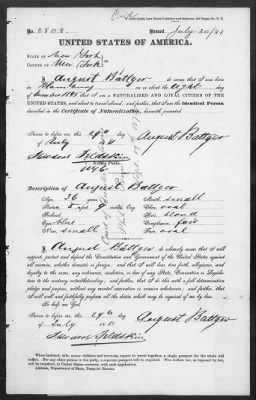 No. 2808. Issued July 30/81
UNITED STATES OF AMERICA.
STATE OF New York
COUNTY OF New York
I, August Battger do swear that I was born
in Hamburg on the eight day
of 1845 that I am a NATURALIZED AND LOYAL CITIZEN OF THE
UNITED STATES, and about to travel abroad; and further, that I am the Identical Person
described in the Certificate of Naturalization
Sworn to before me, this 29th day
of July 1881 August Battger
Notary Public.
Description of August Battger
Age, 36 years Mouth, small
Stature, 5 feet Eng. Chin, oval
Forehead, Hair, blond
Eyes, blue Complexion, fair
Nose, small Face, oval
I, August Battger do solemnly swear that I will
support, protect and defend the Constitution and Government of the United States against
all enemies, whether domestic or foreign; and that I will bear true faith, allegiance, and
loyalty to the same, any ordinance, resolution, or law of any State, Convention or Legislature
to the contrary notwithstanding; and further, that I do this with a full determination,
pledge and purpose, without any mental reservation or evasion whatsoever; and further, that
I will well and faithfully perform all the duties which may be required of me by law.
So help me God.
Sworn to before me, this 29th day
of July 1881 August Battger
When husband, wife, minor children and servants, expect to travel together, a single passport for the whole will
suffice. For any other person in the party, a separate passport will be required.